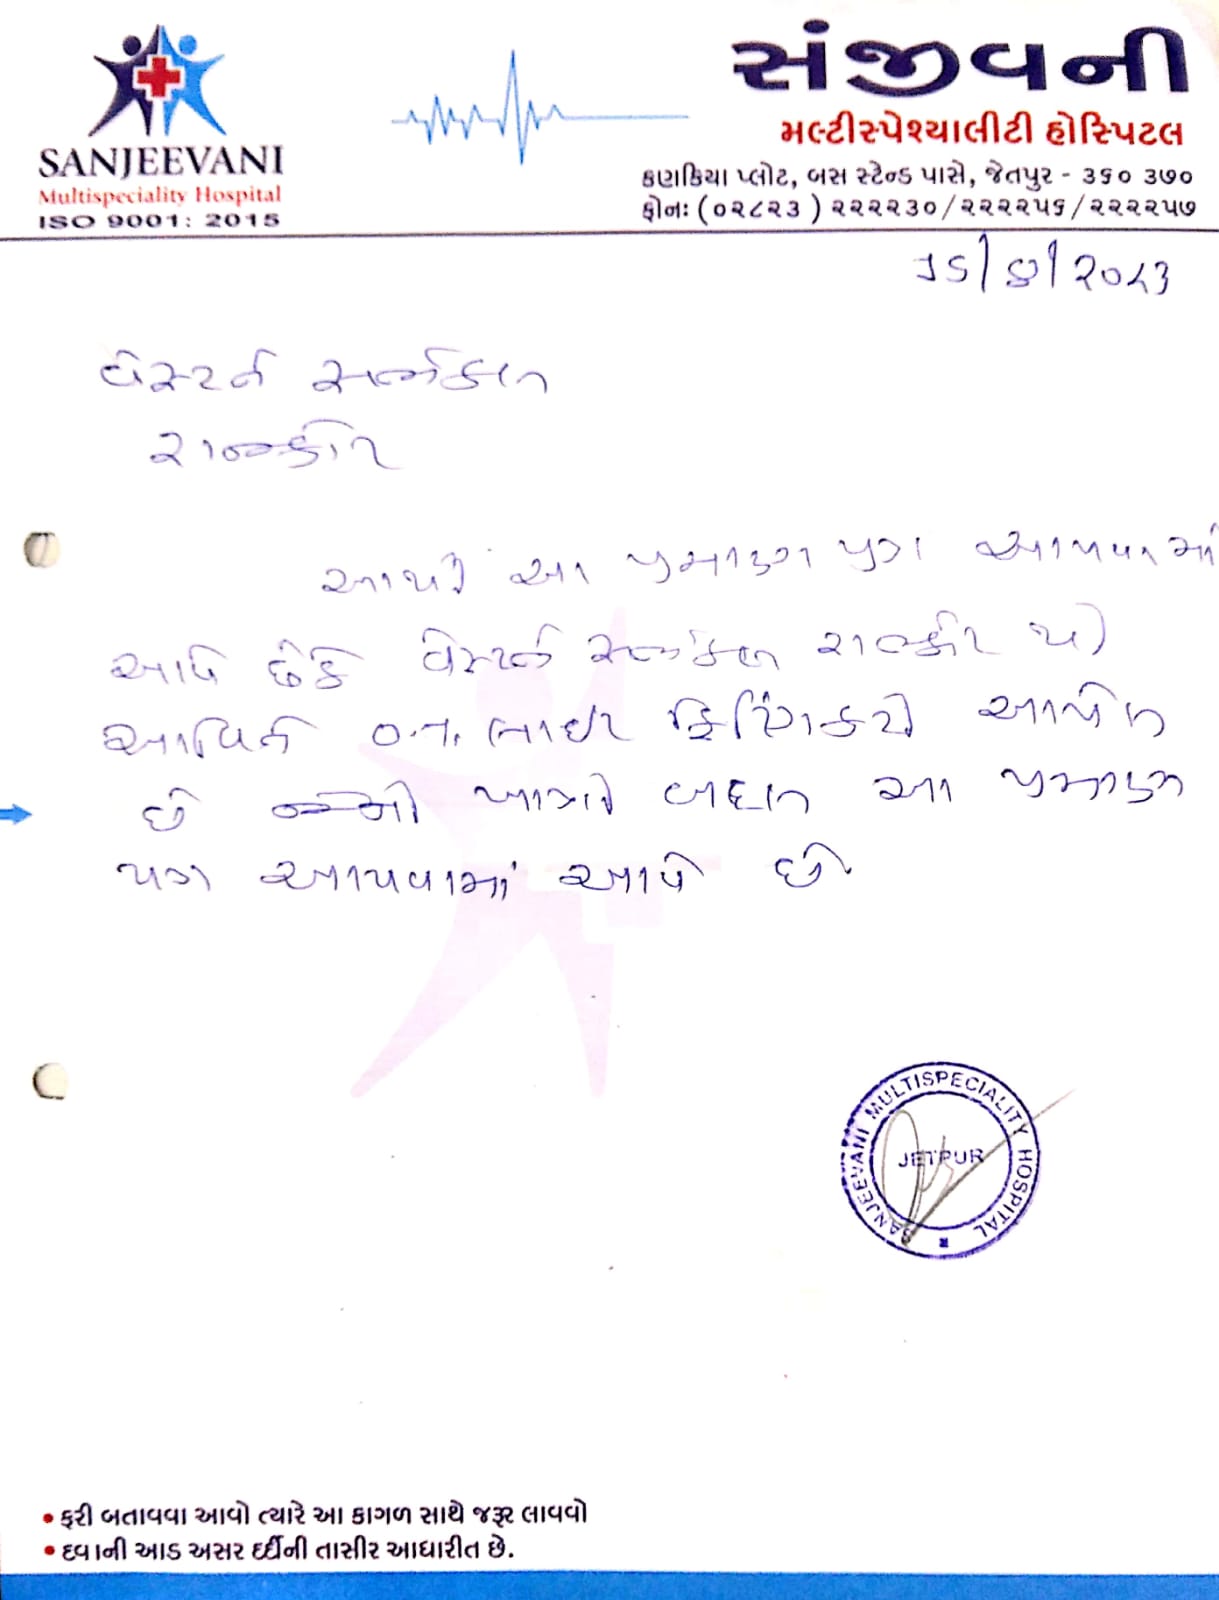 SANJEEVANI
Multispeciality Hospital
ISO 9001: 2015
સંજીવની
મલ્ટીસ્પેશ્યાલીટી હોસ્પિટલ
કણકિયા પ્લોટ, બસ સ્ટેન્ડ પાસે, જેતપુર - ૩૬૦ ૩૭૦
ફોનઃ (૦૨૮૨૩ ) ૨૨૨૨૩૦/૨૨૨૨૫૬/૨૨૨૨૫૭
વેસ્ટર્ન સર્જીકલ
રાજકોટ
આથી આ પ્રમાણ પત્ર આપવામાં
આવે છેકે વેસ્ટર્ન સર્જીકલ રાજકોટ થી
આવિને O.T. લાઇટ ફિટિંગ કરી આપેલ
છે જેની ખાત્રી બદલ આ પ્રમાણ
પત્ર આપવામાં આવે છે.
SANJEEVANI MULTISPECIALITY HOSPITAL
JETPUR
• ફરી બતાવવા આવો ત્યારે આ કાગળ સાથે જરૂર લાવવો
• દવાની આડ અસર દર્દીની તાસીર આધારીત છે.